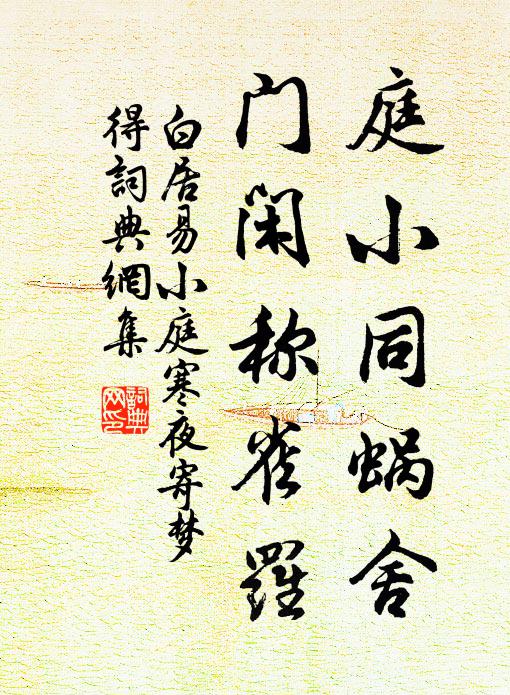 庭小同蜗舍
门闲称雀罗
白居易小庭寒夜寄梦
得词典网集
詞典
网印